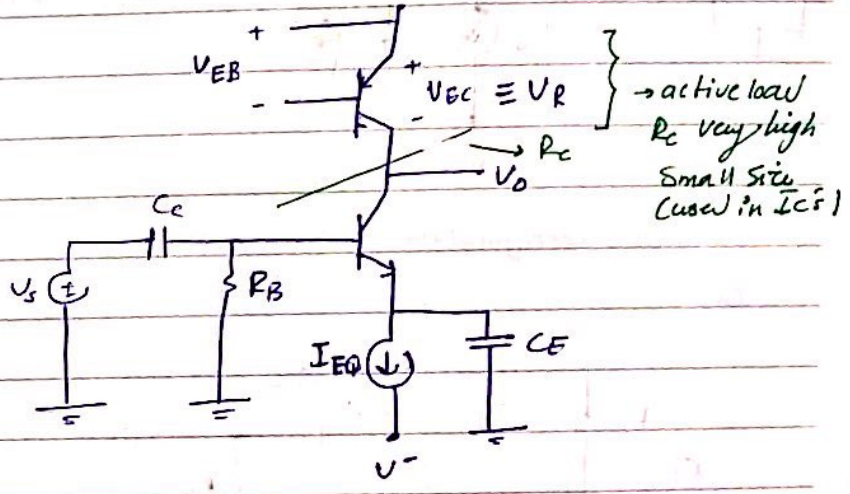 +
V_EB
-
+
V_EC ≡ V_R
-
→ active load
R_C very high
Small Size
(used in IC's)
→ R_C
V_O
C_C
V_S
+
-
R_B
I_EQ
C_E
V^-